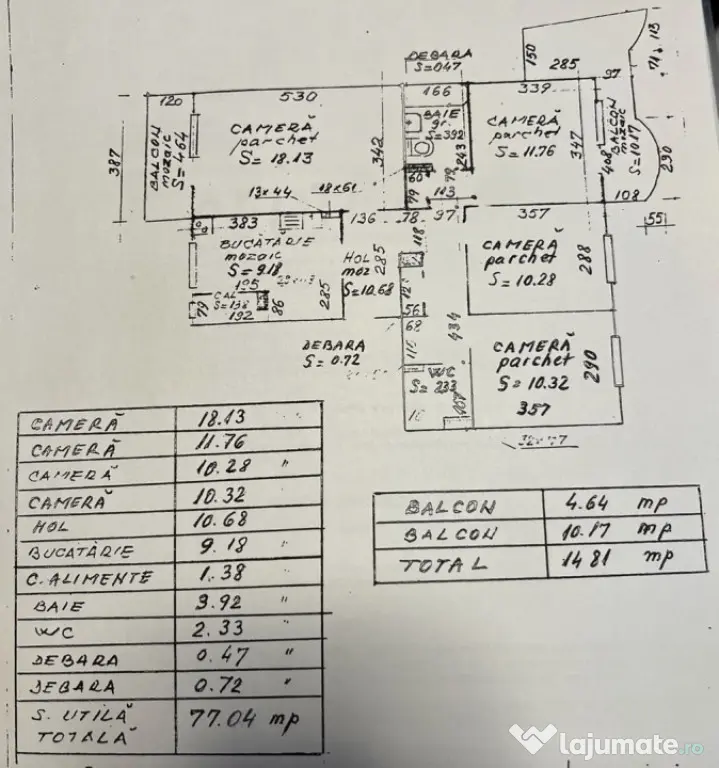 DEBARA
S=047
166
120
530
CAMERĂ
parchet
S=18.13
342
387
BALCON
mozaic
S=4.64
BAIE
gr.
S=392
243
60
79
79
113
339
CAMERĂ
parchet
S=11.76
347
285
150
97
113
74
BALCON
mozaic
S=10.17
408
290
108
55
13x44
18x61
383
136
78
97
357
BUCATĂRIE
mozaic
S=9.18
195
CAL
S=138
79
192
86
285
HOL
moz
S=10.68
285
118
56
68
434
CAMERĂ
parchet
S=10.28
288
DEBARA
S=0.72
WC
S=233
CAMERĂ
parchet
S=10.32
290
357
CAMERĂ 18.13 "
CAMERĂ 11.76
CAMERĂ 10.28 "
CAMERĂ 10.32
HOL 10.68 "
BUCATĂRIE 9.18 "
C. ALIMENTE 1.38 "
BAIE 3.92 "
WC 2.33 "
DEBARA 0.47 "
DEBARA 0.72 "
S. UTILĂ
TOTALĂ 77.04 mp
BALCON 4.64 mp
BALCON 10.17 mp
TOTAL 14.81 mp
lajumate.ro